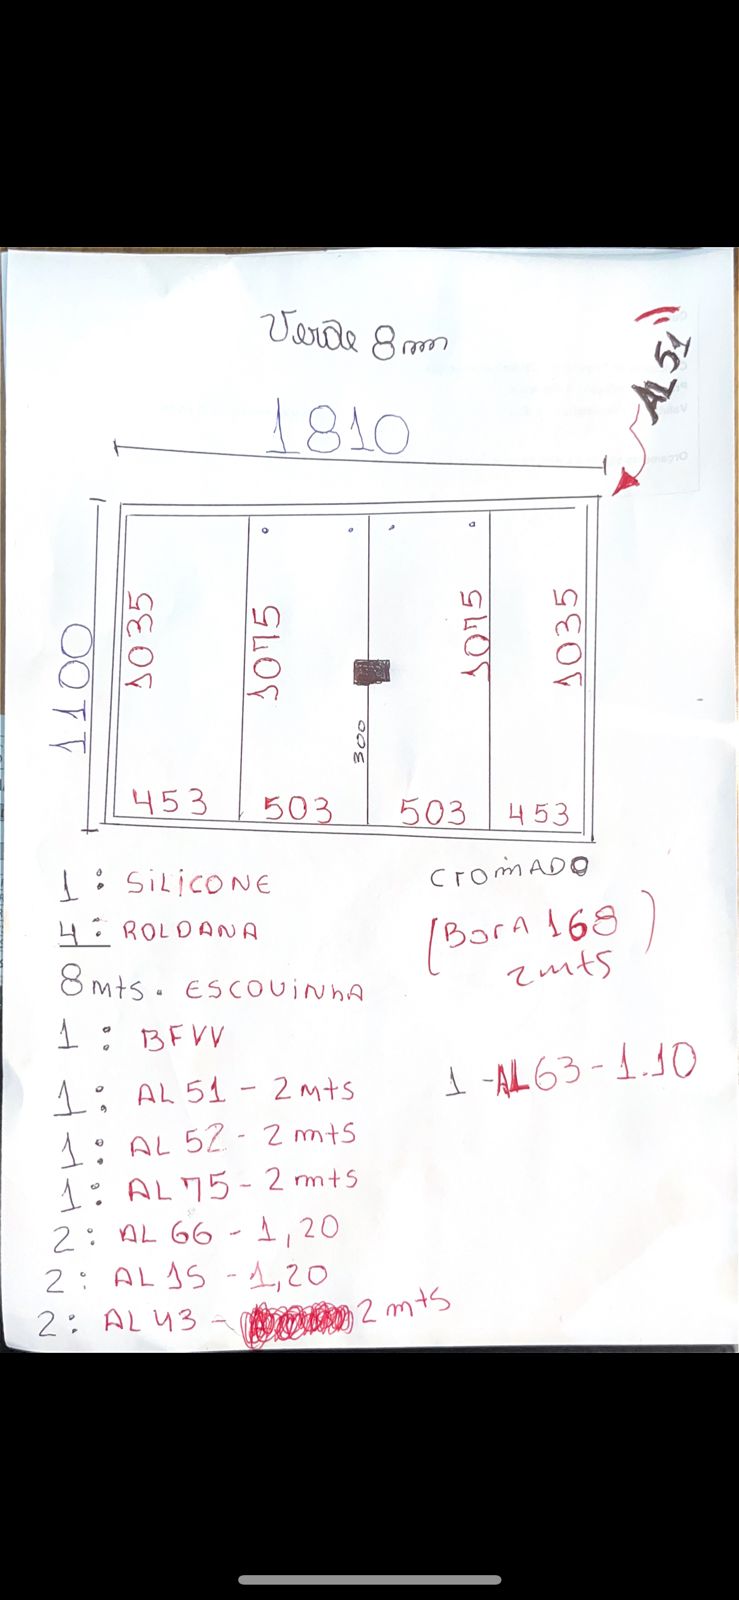 Verde 8mm
AL 51
1810
1100
1035
1075
1075
1035
300
453
503
503
453
1: SiLiCONE
4: ROLDANA
8mts. ESCOVINhA
1: BFVV
1: AL 51 - 2 mts
1: AL 52 - 2 mts
1: AL 75 - 2 mts
2: AL 66 - 1,20
2: AL 15 - 1,20
2: AL 43 - 2 mts
CromADO
(BorA 168)
2 mts
1 - AL 63 - 1.10